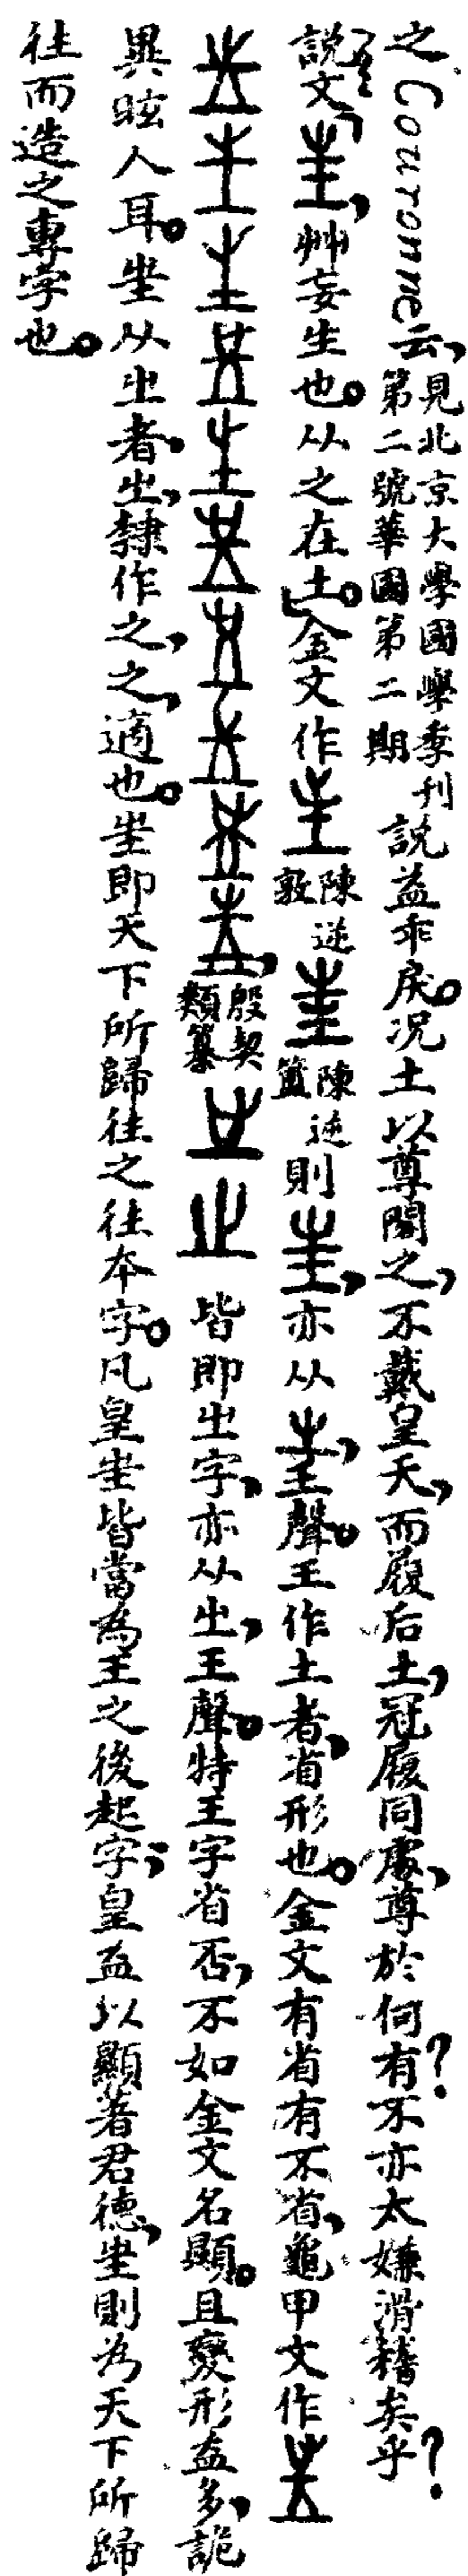 之Couronne云，見北京大學國學季刊第二號華國第二期說益乖戾。况土以尊閣之，不戴皇天，而履后土，冠履同處，尊於何有？不亦太嫌滑稽矣乎？
說文「㞷，艸妄生也。从之在土。」金文作陳逆敦陳逆簠則㞷，亦从㞢，王聲。王作土者，省形也。金文有省有不省，龜甲文作
殷契類纂皆即㞢字，亦从㞢，王聲。特王字省否，不如金文名顯。且變形益多，詭
異眩人耳。㞷从㞢者，㞢，隸作之，之，適也。㞷即天下所歸往之往本字。凡皇㞷皆當為王之後起字；皇益以顯著君德，㞷則為天下所歸
往而造之專字也。